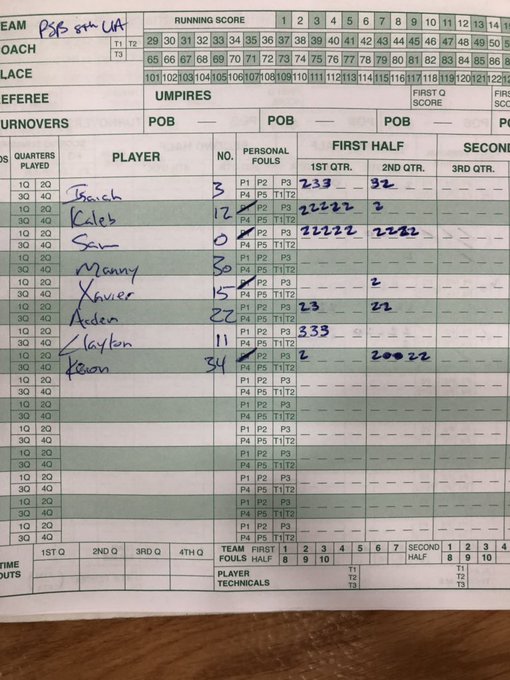 TEAM PSB 8th UA RUNNING SCORE 1 2 3 4 5 6 7 8 9 10 11 12 13 14
COACH T1 T2 T3 29 30 31 32 33 34 35 36 37 38 39 40 41 42 43 44 45 46 47 48 49 50
65 66 67 68 69 70 71 72 73 74 75 76 77 78 79 80 81 82 83 84 85 86
PLACE 101 102 103 104 105 106 107 108 109 110 111 112 113 114 115 116 117 118 119 120 121 122
REFEREE UMPIRES FIRST Q SCORE
TURNOVERS POB — POB — POB — POB —
QUARTERS PLAYED PLAYER NO. PERSONAL FOULS FIRST HALF SECON
1ST QTR. 2ND QTR. 3RD QTR.
1Q 2Q P1 P2 P3
3Q 4Q Isaiah 3 P4 P5 T1 T2 233 32
1Q 2Q P1 P2 P3
3Q 4Q Kaleb 12 P4 P5 T1 T2 22222 2
1Q 2Q P1 P2 P3
3Q 4Q Sam 0 P4 P5 T1 T2 22222 2222
1Q 2Q P1 P2 P3
3Q 4Q Manny 30 P4 P5 T1 T2
1Q 2Q P1 P2 P3
3Q 4Q Xavier 15 P4 P5 T1 T2 2
1Q 2Q P1 P2 P3
3Q 4Q Aiden 22 P4 P5 T1 T2 23 22
1Q 2Q P1 P2 P3
3Q 4Q Clayton 11 P4 P5 T1 T2 333
1Q 2Q P1 P2 P3
3Q 4Q 34 P4 P5 T1 T2 2 2 22
1Q 2Q P1 P2 P3
3Q 4Q P4 P5 T1 T2
1Q 2Q P1 P2 P3
3Q 4Q P4 P5 T1 T2
1Q 2Q P1 P2 P3
3Q 4Q P4 P5 T1 T2
1Q 2Q P1 P2 P3
3Q 4Q P4 P5 T1 T2
1Q 2Q P1 P2 P3
3Q 4Q P4 P5 T1 T2
1Q 2Q P1 P2 P3
3Q 4Q P4 P5 T1 T2
1Q 2Q P1 P2 P3
3Q 4Q P4 P5 T1 T2
TIME OUTS 1ST Q 2ND Q 3RD Q 4TH Q TEAM FOULS FIRST HALF 1 2 3 4 5 6 7 SECOND HALF 1 2 3 4
8 9 10 8 9 10
PLAYER TECHNICALS T1 T2 T3 T1 T2 T3